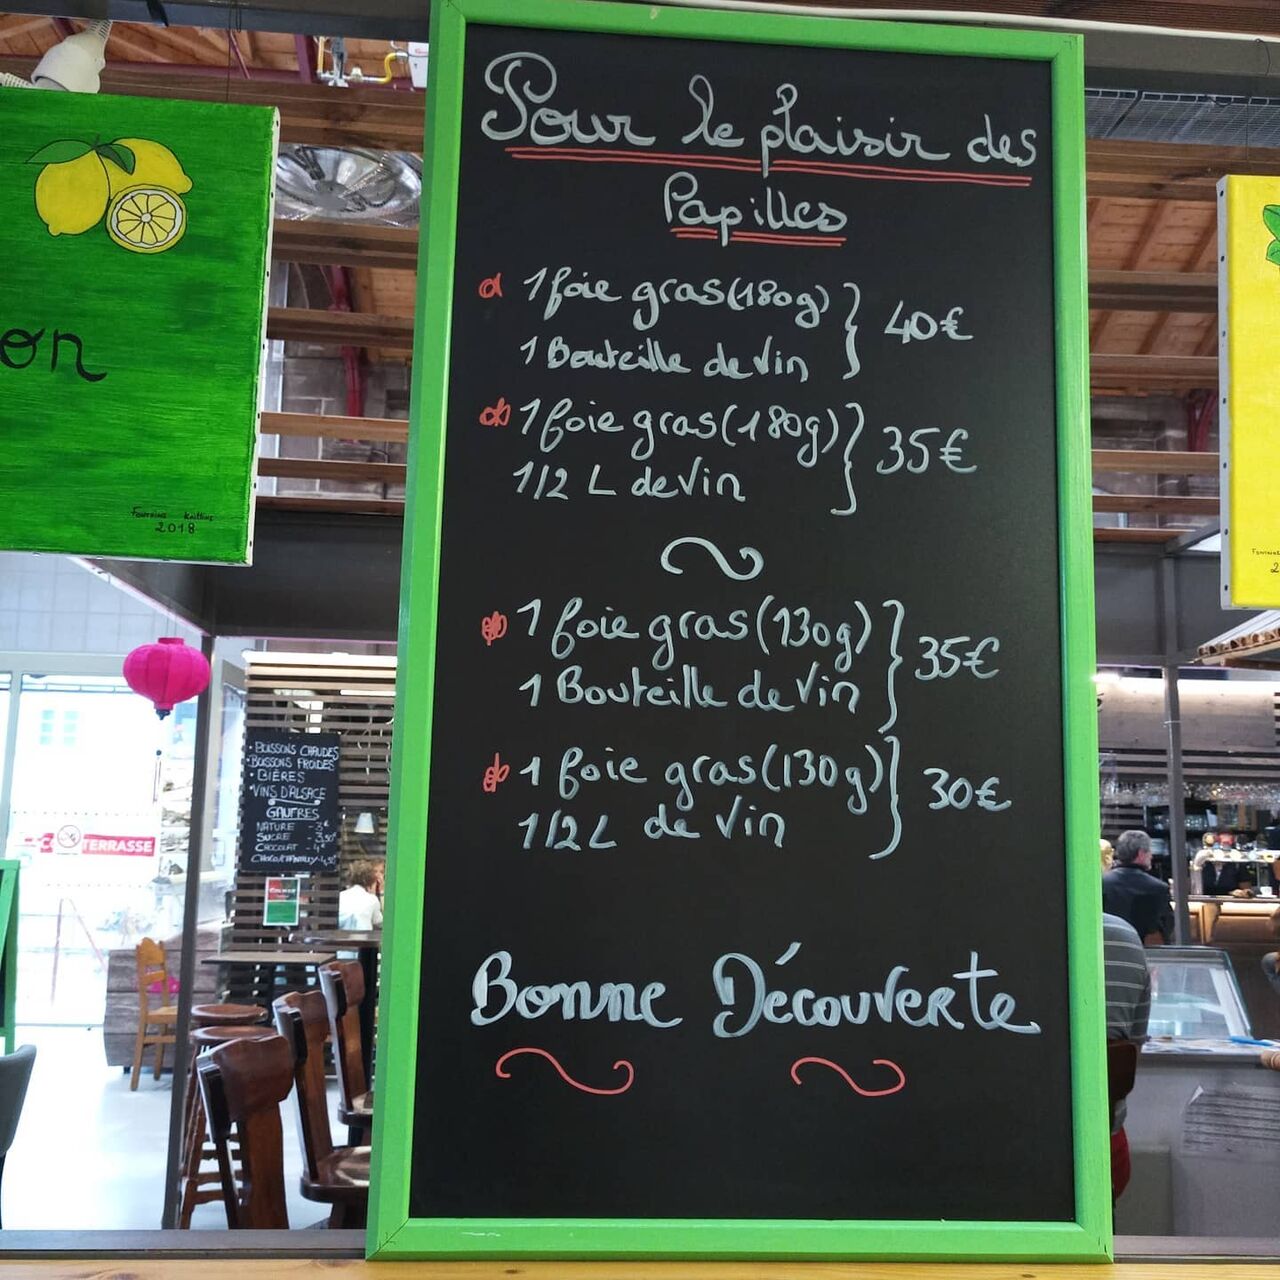 Pour le plaisir des
Papilles
1 foie gras (180g) } 40€
1 Bouteille de Vin
1 foie gras (180g) } 35€
1/2 L de Vin
1 foie gras (130g) } 35€
1 Bouteille de Vin
1 foie gras (130g) } 30€
1/2 L de Vin
Bonne Découverte
on
2018
• BOISSONS CHAUDES
• BOISSONS FROIDES
• BIÈRES
• VINS D'ALSACE
GAUFRES
NATURE - 3€
SUCRE - 3,50€
CHOCOLAT - 4€
TERRASSE